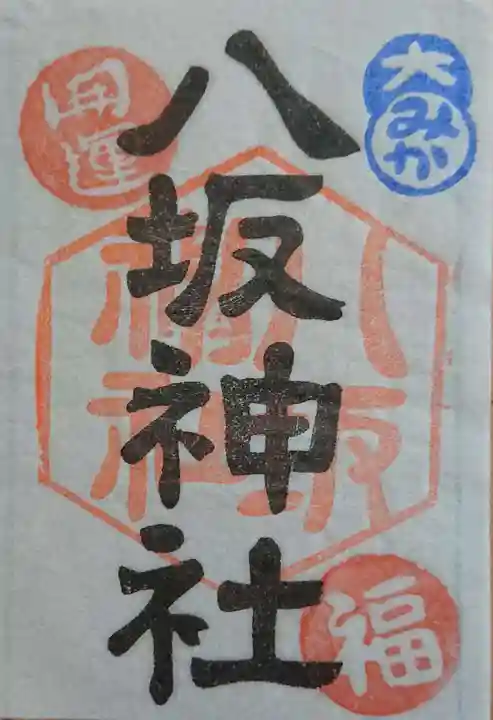 大みか
開運
八坂神社
八坂
神社
福